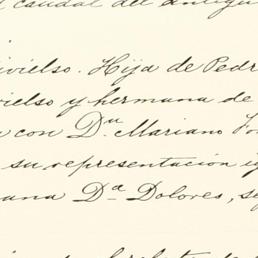 caudal del antigu
ivielso. Hija de Pedr
vielso y hermana de
con D.n Mariano
su representacion
ana D.a Dolores, se